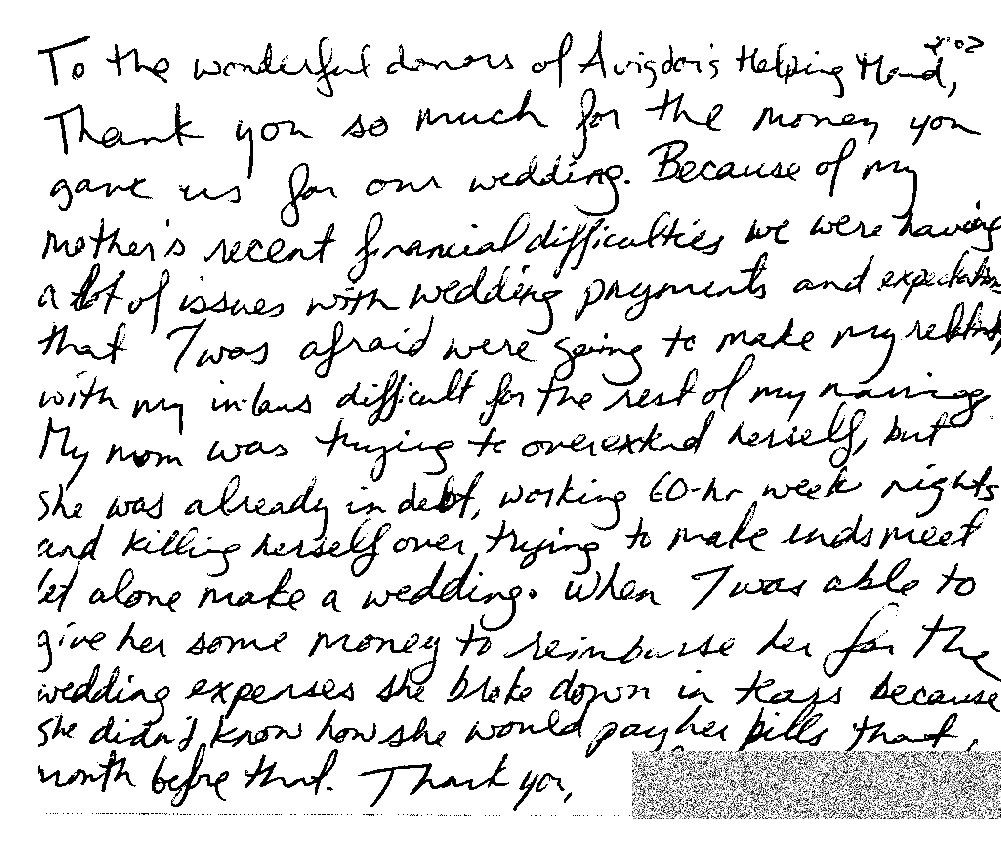 To the wonderful donors of Avigdor's Helping Hand,
Thank you so much for the money you
gave us for our wedding. Because of my
mother's recent financial difficulties we were having
a lot of issues with wedding payments and
that I was afraid were going to make my
with my in-laws difficult for the rest of my
My mom was trying to overextend herself, but
she was already in debt, working 60-hr week nights
and killing herself over trying to make ends meet
let alone make a wedding. When I was able to
give her some money to reimburse her for the
wedding expenses she broke down in tears because
she didn't know how she would pay her bills that
month before that. Thank you,